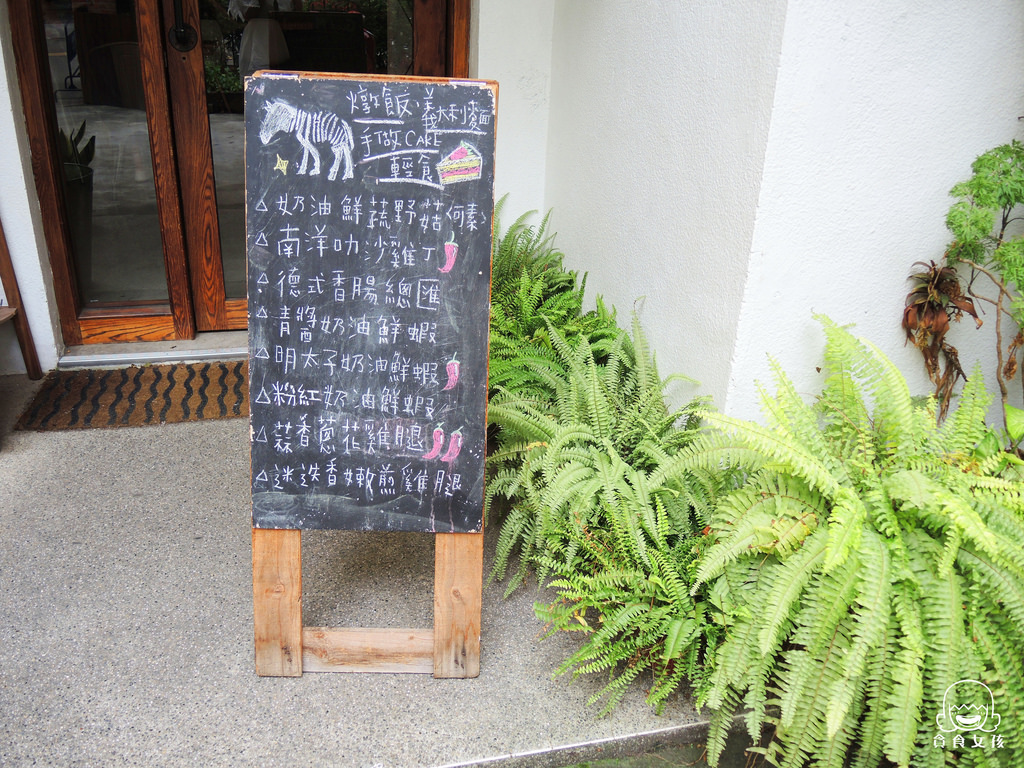 燉飯·義大利麵
手做CAKE
輕食
△奶油鮮蔬野菇<何素>
△南洋叻沙雞丁
△德式香腸總匯
△青醬奶油鮮蝦
△明太子奶油鮮蝦
△粉紅奶油鮮蝦
△蒜香蔥花雞腿
△迷迭香嫩煎雞腿
貪食女孩